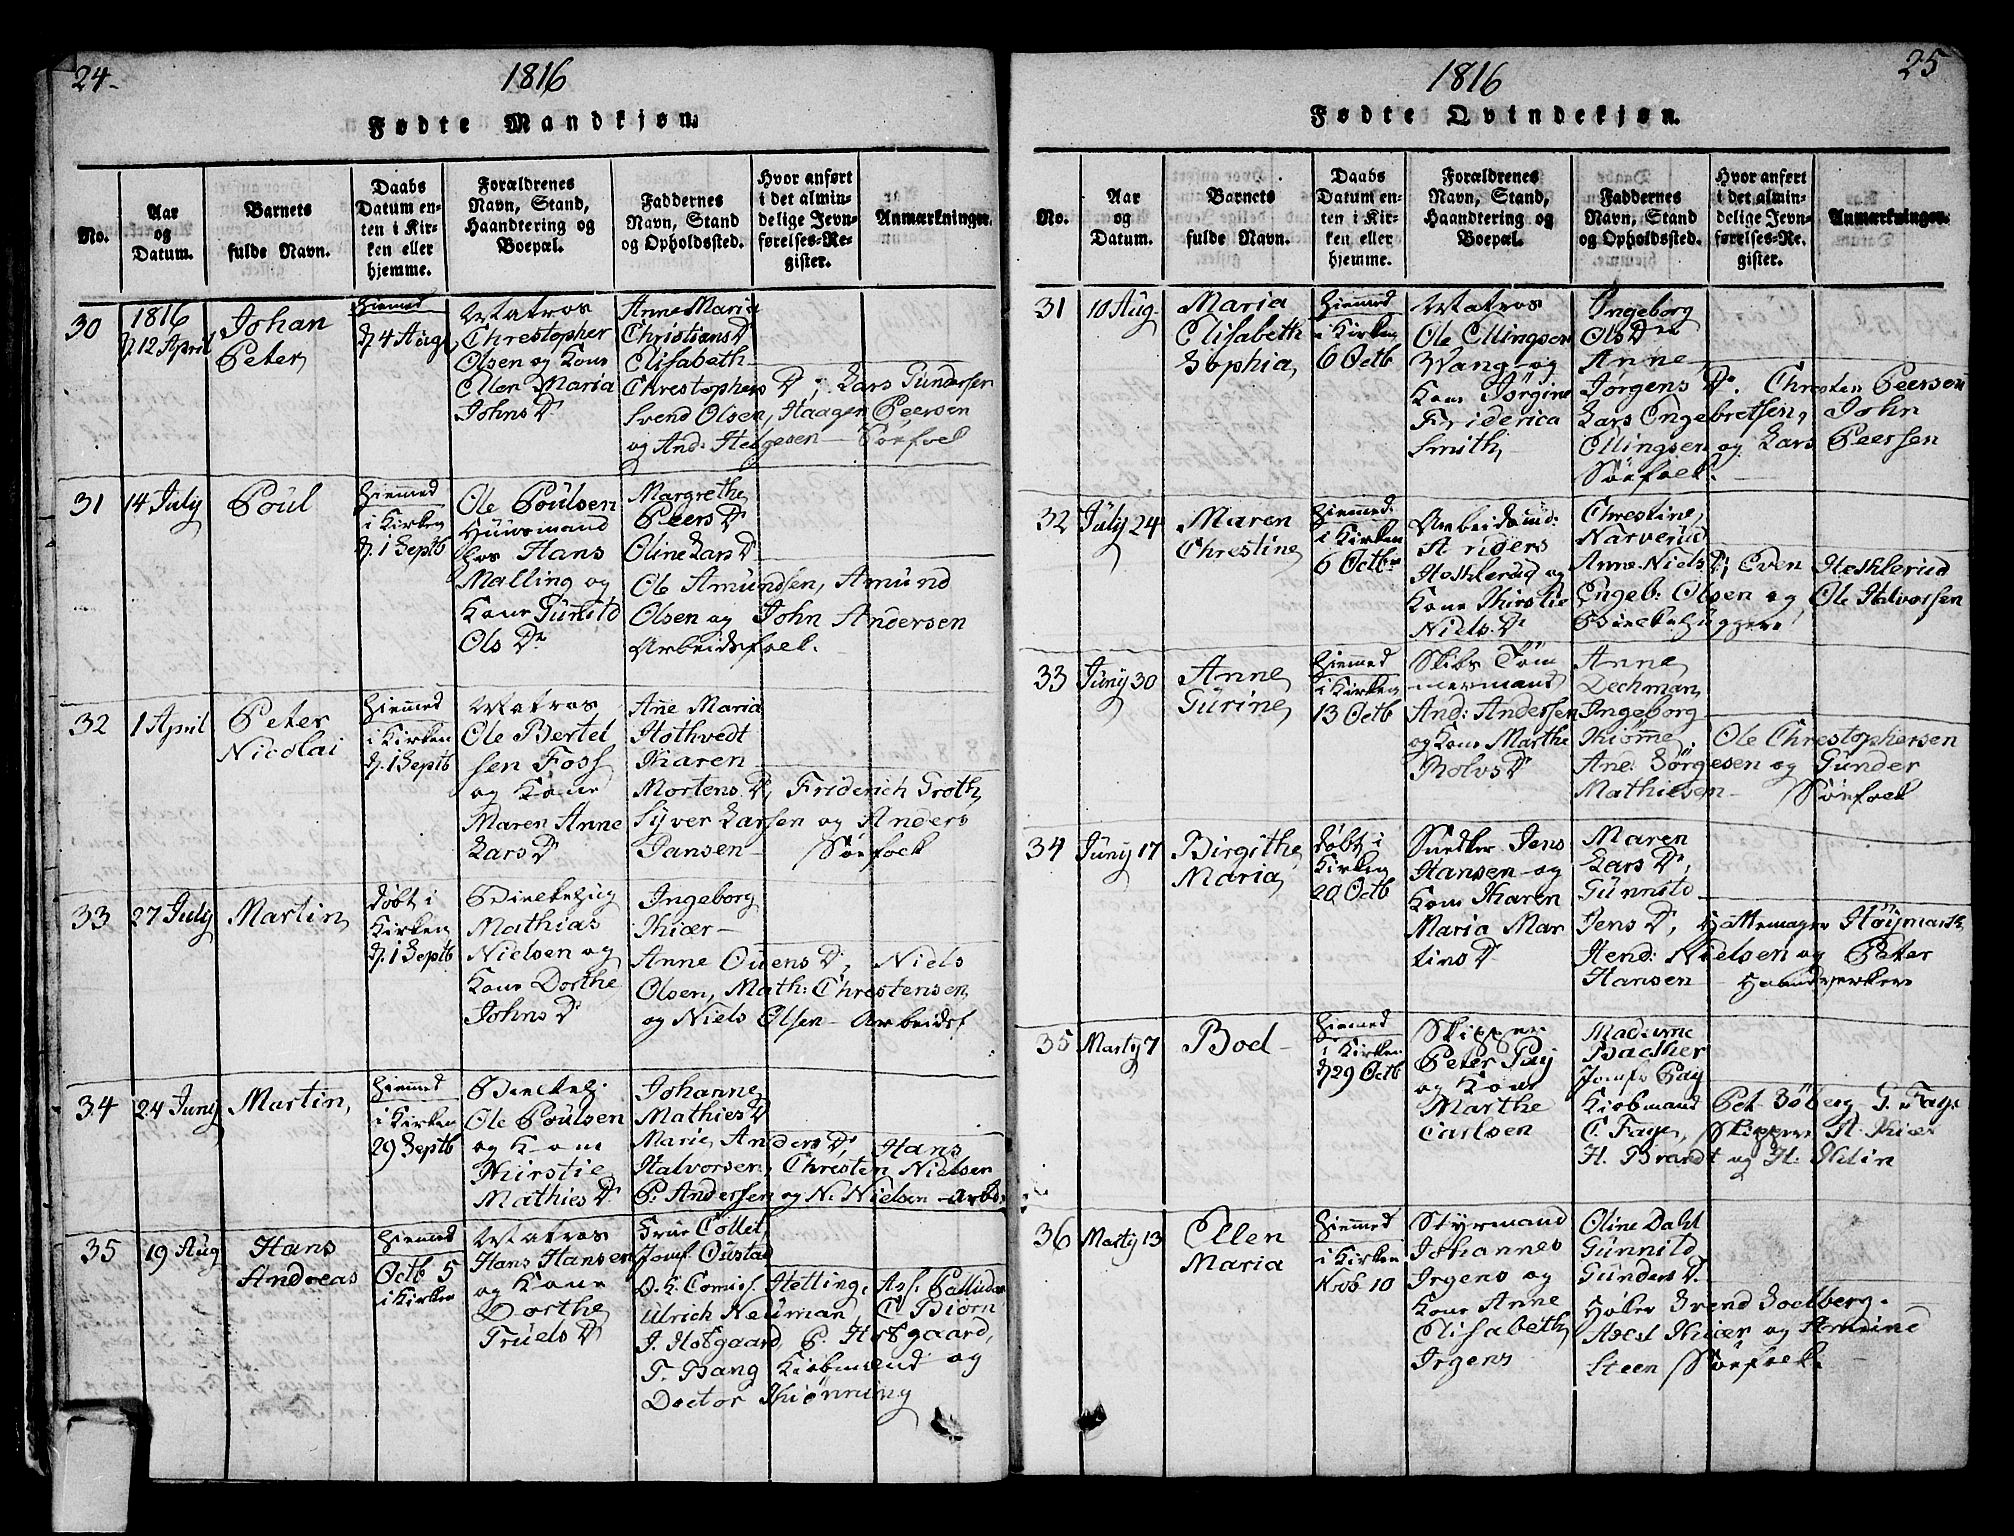 24.
1816
Fødte Mandkjøn.
No.
Aar
og
Datum.
Barnets
fulde Navn.
Daabs
Datum en-
ten i Kir-
ken eller
hjemme.
Forældrenes
Navn, Stand,
Haandtering og
Boepæl.
Faddernes
Navn, Stand
og Opholdssted.
Hvor anført
i det almin-
delige Jevn-
førelses-Re-
gister.
Anmærkninger.
30
1816
d. 12 April
Johan
Peter
Hiemmed
d. 4 Aug
Matros
Chrestopher
Olsen og Kone
Ellen Maria
Johns D
Anne Maria
Christians D
Elisabeth
Chrestophers D; Lars Gundersen
Svend Olsen, Haagen Peersen
og And: Helgesen – Søefolk
31
14 July
Poül
Hiemmed
i Kirken
d. 1 Septb
Ole Poülsen
Hüüsmand
hos Hans
Malling og
Kone Günild
Ols D
Margrethe
Peers D
Oline Lars D
Ole Amündsen, Amünd
Olsen og John Andersen
Arbeidsfolk.
32
1 April
Peter
Nicolai
Hiemmed
i Kirken
d. 1 Septb
Matros
Ole Bertel
sen Foss
og Kone
Maren Anne
Lars D
Ane Maria
Hothvedt
Karen
Mortens D, Friderich Groth,
Syver Larsen og Anders
Jansen – Søefolk
33
27 July
Martin
Døbt i
Kirken
d. 1 Septb
Bielkehug
Mathias
Nielsen og
Kone Dorthe
Johns D
Ingeborg
Kiær –
Anne Ouens D, Niels
Olsen, Math: Chrestensen
og Niels Olsen – Arbeidsf
34
24 Juny
Martin,
Hiemmed
i Kirken
29 Septb
Bielkeh:
Ole Poülsen
og Kone
Kirstie
Mathies D
Johanne
Mathies D
Marie Anders D, Hans
Halvorsen, Chresten Nielsen
P. Andersen og N. Nielsen – Arbs.
35
19 Aug
Hans
Andreas
Hiemmed
Octb 5
i Kirken
Matros
Hans Hansen
og Kone
Dorthe
Truels D
Frue Collet
Jomf. Oustad
O. K. Comis. Hetting, Ass. Palludan
Ulrich Neuman, C. Biørn
J. Hofgaard, P. Hofgaard,
T. Bang Kiøbmænd og
Doctor Kiønning
25
1816
Fødte Qvindekjøn.
No.
Aar
og
Datum.
Barnets
fulde Navn.
Daabs
Datum en-
ten i Kir-
ken eller
hjemme.
Forældrenes
Navn, Stand,
Haandtering og
Boepæl.
Faddernes
Navn, Stand
og Opholdssted.
Hvor anført
i det almin-
delige Jevn-
førelses-Re-
gister.
Anmærkninger.
31
10 Aug.
Maria
Elisabeth
Sophia,
Hiemmed
i Kirken
6 Octb
Matros
Ole Ellingsen
Wang og
Kone Jørgine
Friderica
Smith,
Ingeborg
Ols D
Anne
Jørgens D. Chresten Peersen
Lars Engebretsen, John
Ellingsen og Lars Peersen
Søefolk.
32
Jüly 24
Maren
Chrestine
Hiemmed
i Kirken
6 Octb
Arbeidsmd:
A riders
Heshlerud og
Kone Kirstie
Niels D
Chrestine
Narverüd
Anne Niels D, Even Heshlerüd
Engeb: Olsen og Ole Halvorsen
Bielkehuggere
33
Jüny 30
Anne
Gürine
Hiemmed
i Kirken
13 Octb
Skibs Tøm
mermand
And: Andersen
og Kone Marthe
Rolvs D
Anne
Dechman
Ingeborg
Kiømme, Ole Chrestophersen
Ane: Sørgesen og Günder
Mathiesen – Søefolk
34
Jüny 17
Birgithe
Maria
Døbt i
Kirken
20 Octb
Snedker Jens
Hansen og
Kone Karen
Maria Mar
tins D
Maren
Lars D,
Günnild
Jens D, Hattemager Høymarth,
Hend: Nielsen og Peter
Hansen – Haandverkere
35
Marty 7
Boel
Hiemmed
i Kirken
d. 29 Octb
Skipper
Peter Pay
og Kone
Marthe
Carlsen
Madame
Badther
Jomfr Pay
Kiøbmand Pet Søberg, G. Faye
C. Faye, Skippere A. Kiær
H. Brandt og H. Klin
36
Marty 13
Ellen
Maria
Hiemmed
i Kirken
Novb 10
Styrmand
Johannes
Irgens og
Kone Anne
Elisabeth
Irgens
Oline Dahl
Günnild
Günders D.
Høker Svend Soelberg.
Axel Kiær og Amüne
Steen Søefolk.